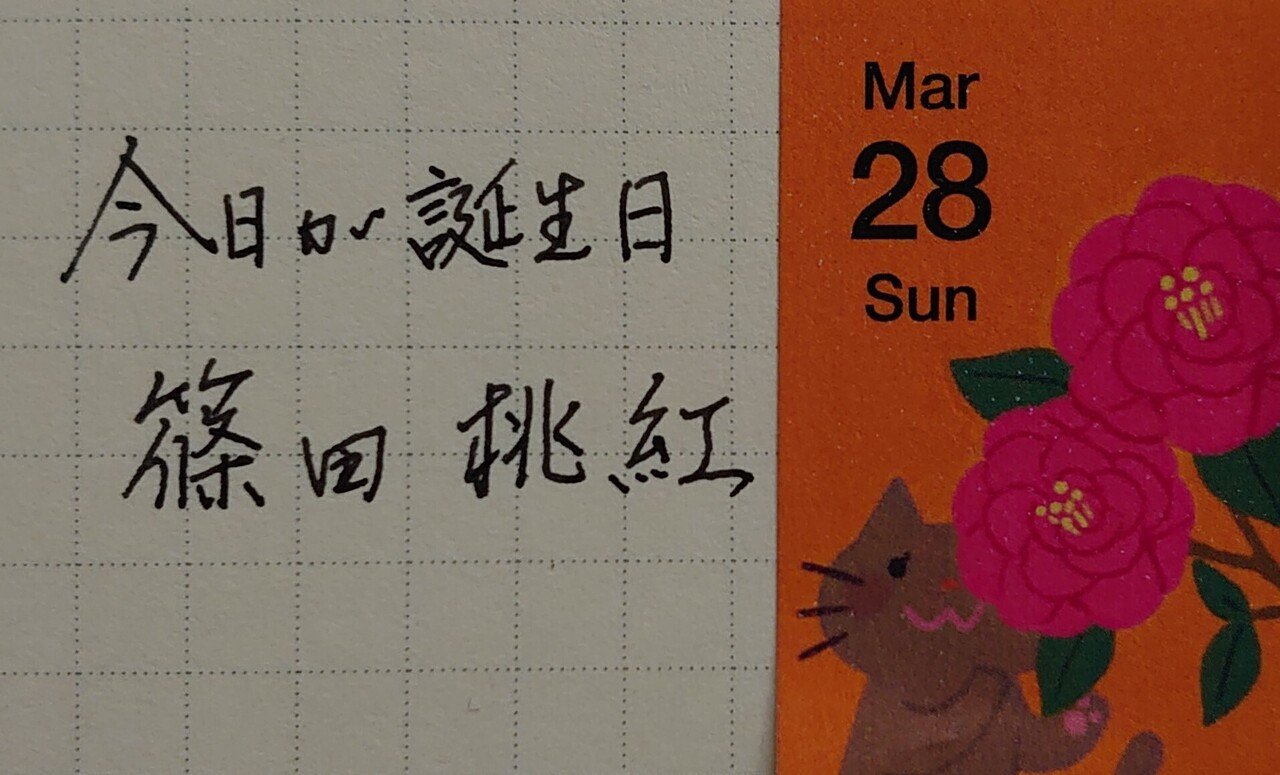 今日が誕生日
篠田桃紅
Mar
28
Sun